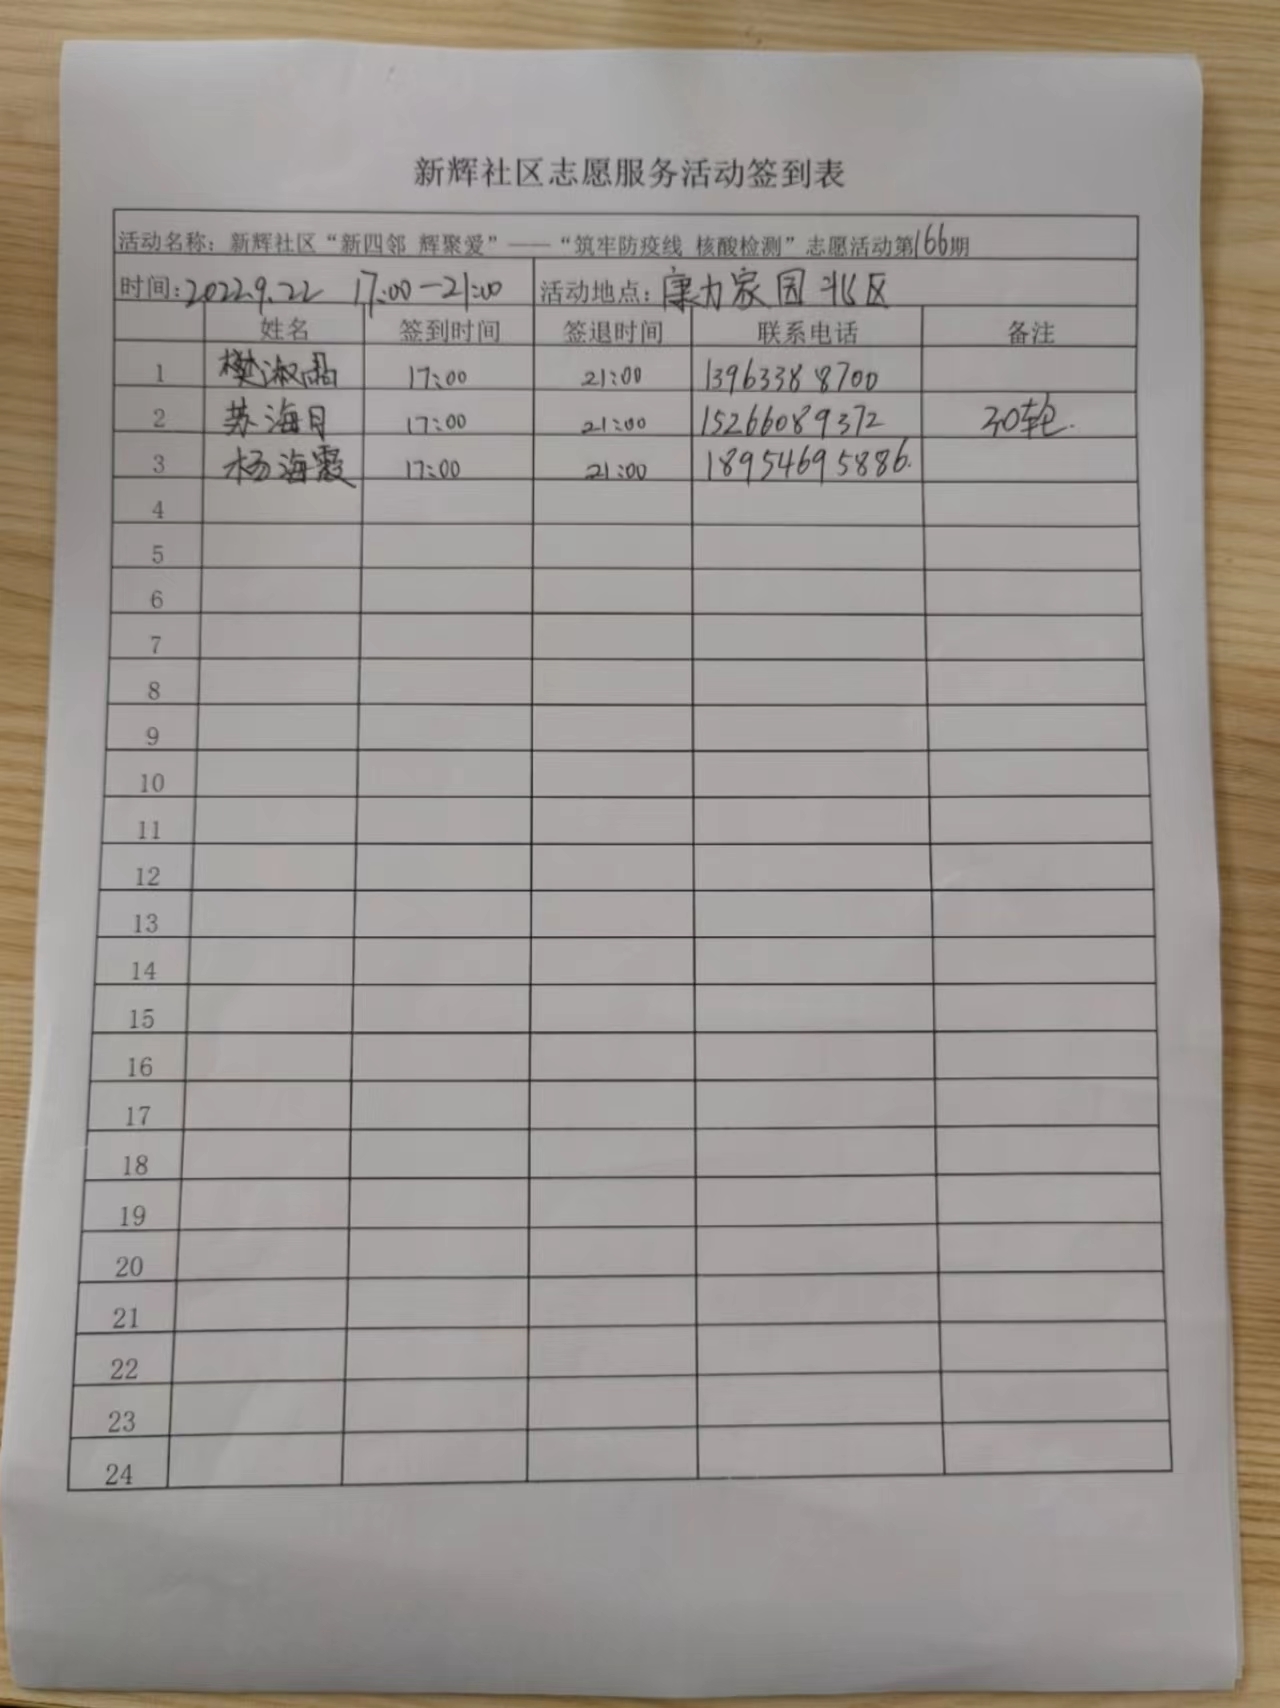 新辉社区志愿服务活动签到表
活动名称：新辉社区“新四邻 辉聚爱”——“筑牢防疫线 核酸检测”志愿活动第166期
时间：2022.9.22 17:00—21:00 活动地点：康力家园北区
姓名 签到时间 签退时间 联系电话 备注
1 樊淑晶 17:00 21:00 13963388700
2 苏海月 17:00 21:00 15266089372 30轮.
3 杨海霞 17:00 21:00 18954695886.
4
5
6
7
8
9
10
11
12
13
14
15
16
17
18
19
20
21
22
23
24